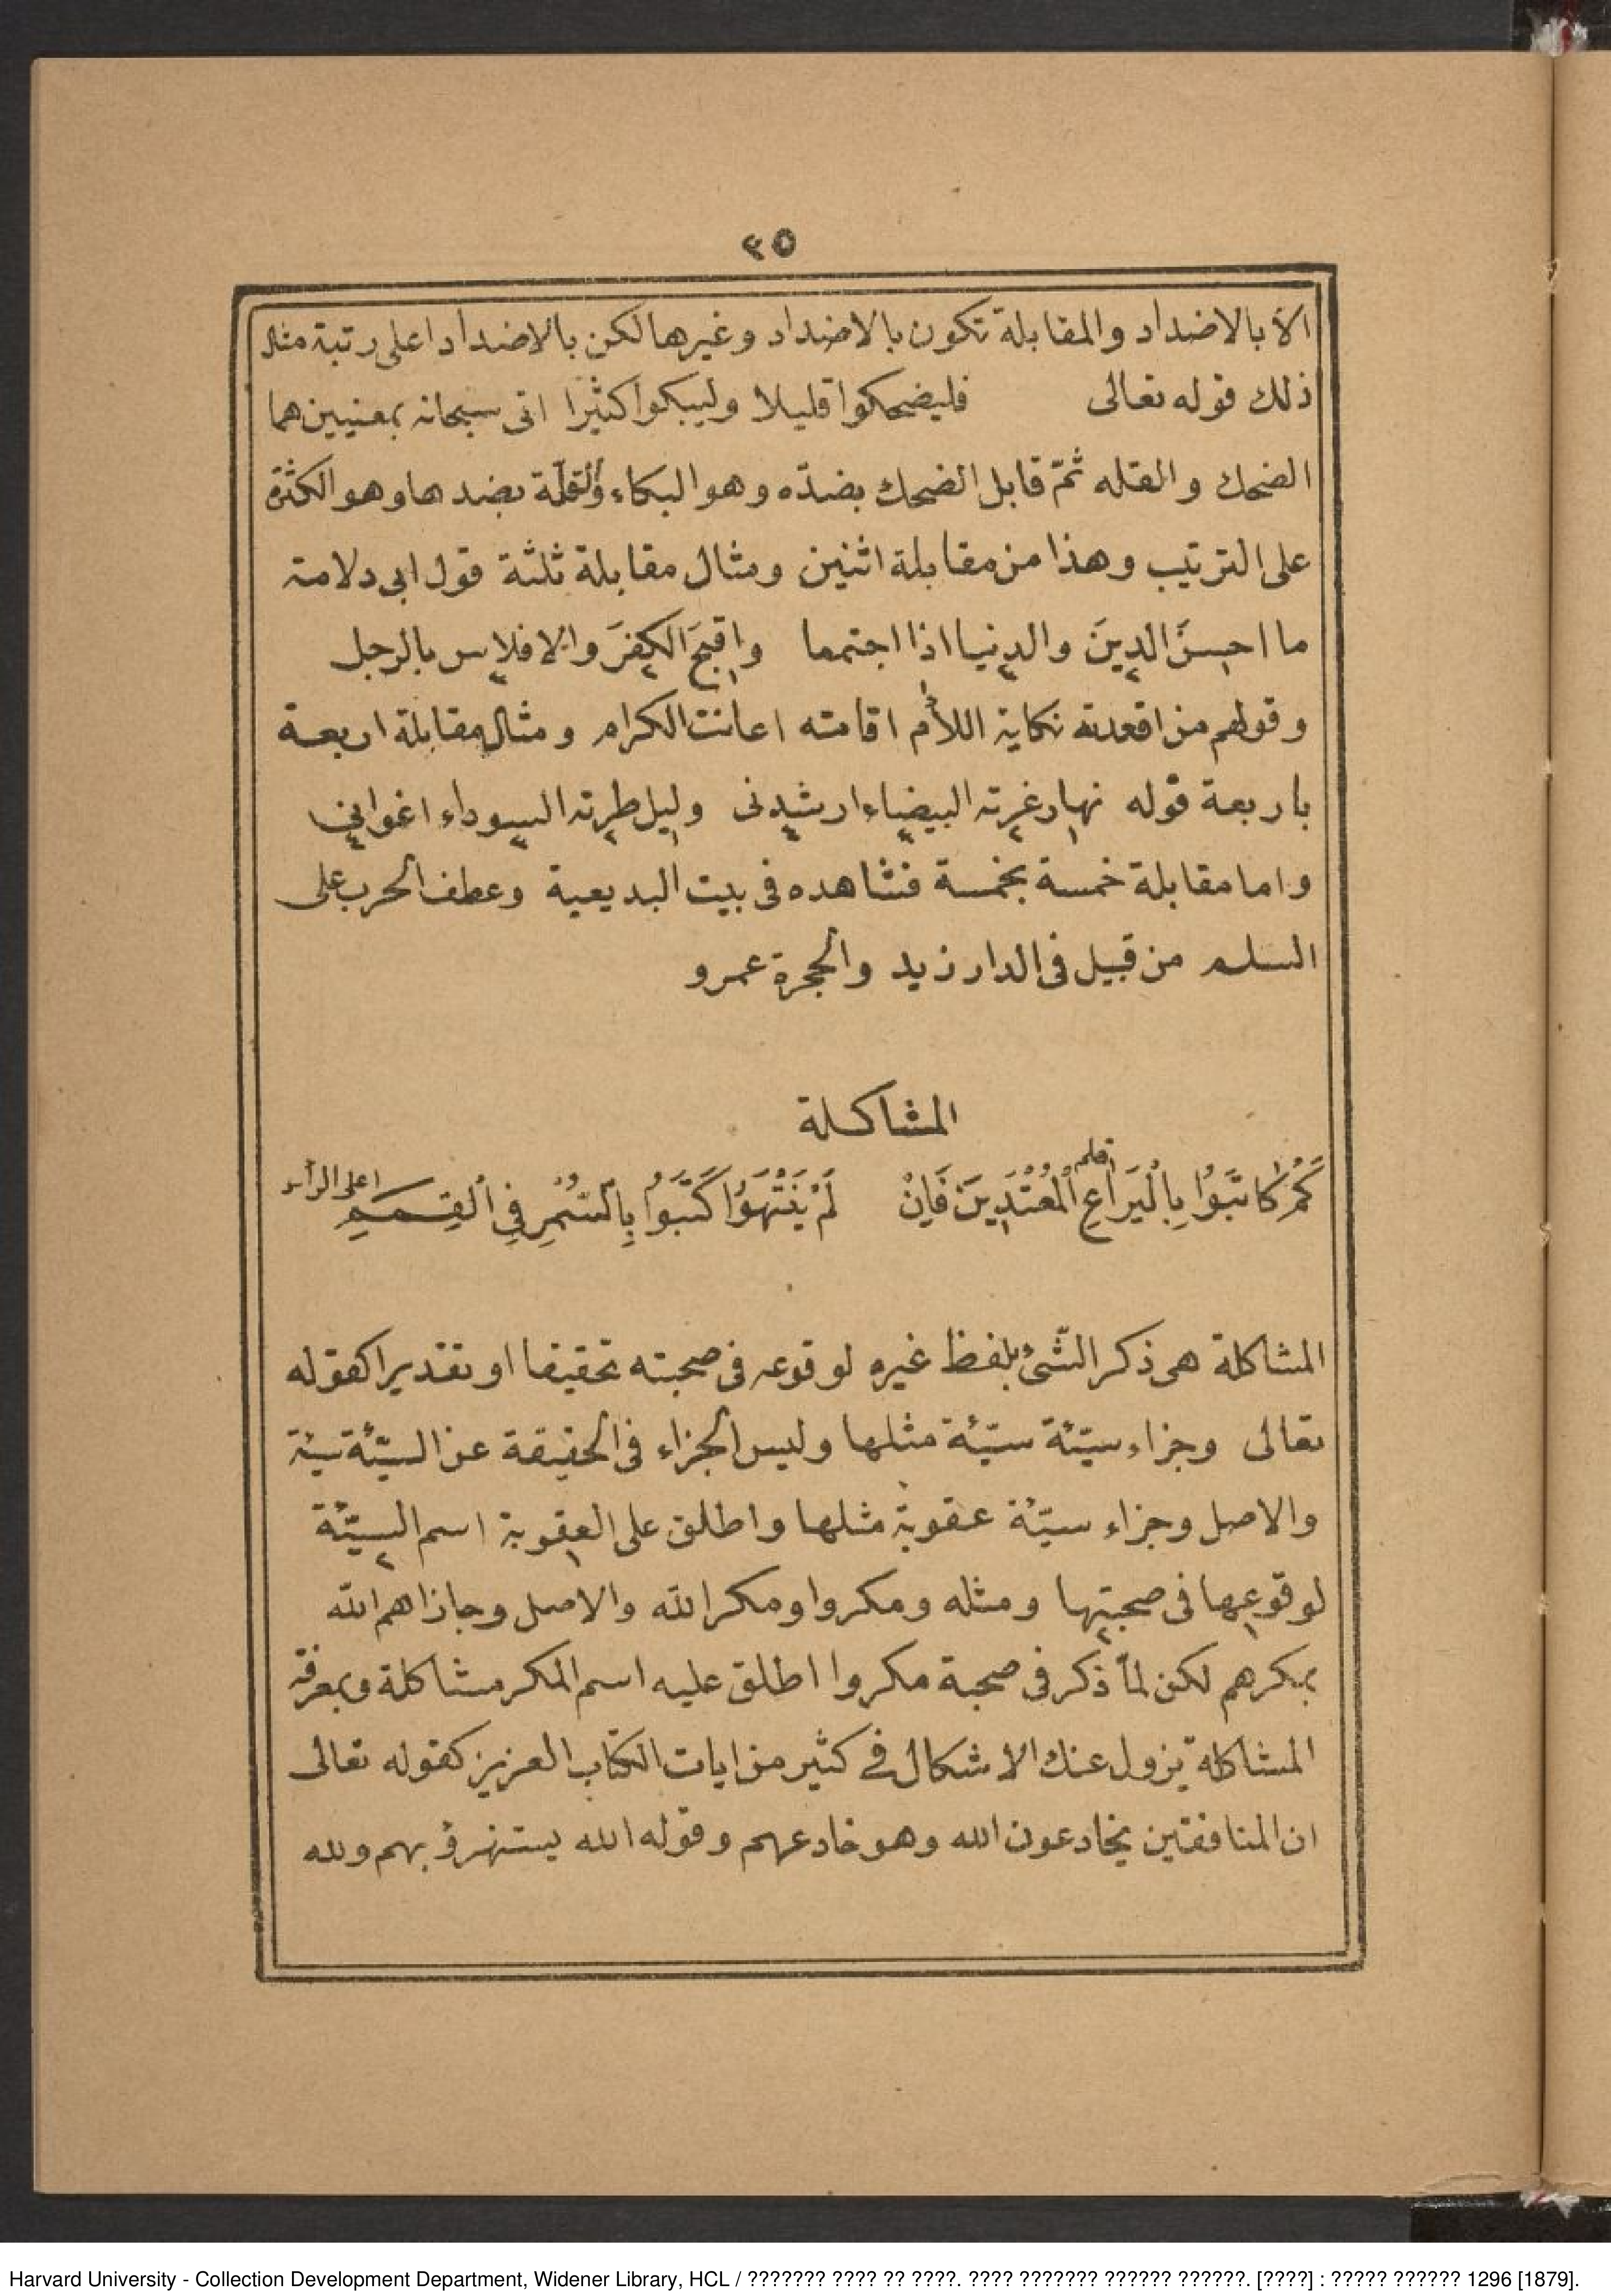 ٤٥
الا بالاضداد والمقابلة تكون بالاضداد وغيرها لكن بالاضداد اعلى رتبة مثال
ذلك قوله تعالى فليضحكوا قليلا وليبكوا كثيرا اتى سبحانه بمعنيين هما
الضحك والقله ثمّ قابل الضحك بضدّه وهو البكاء والقلّة بضدها وهو الكثرة
على الترتيب وهذا من مقابلة اثنين ومثال مقابلة ثلثة قول ابى دلامة
ما احسنَ الدينَ والدنيا اذا اجتمعا واقبحَ الكفرَ والافلاس بالرجل
وقولهم من اقعدته نكاية اللأم اقامته اعانت الكرام ومثال مقابلة اربعة
باربعة قوله نهار غرته البيضاء ارشدنى وليل طرته السوداء اغوانى
واما مقابلة خمسة بخمسة فنشاهده فى بيت البديعية وعطف الحرب على
السلم من قبيل فى الدار زيد والحجرة عمرو
المشاكلة
قلم
كَمْ كَاتَبُوا بِالْيَرَاعِ الْمُعْتَدِينَ فَاِنْ لَمْ يَنْتَهُوا كَتَّبُوا بِالسُّمْرِ فِى الْقِمَمِ
اعلى الرأس
المشاكلة هى ذكر الشّئ بلفظ غيره لوقوعه فى صحبته تحقيقا او تقديرا كقوله
تعالى وجزاء سيّئة سيّئة مثلها وليس الجزاء فى الحقيقة عن السيّئة سيئة
والاصل وجزاء سيّئة عقوبة مثلها واطلق على العقوبة اسم السيّئة
لوقوعها فى صحبتها ومثله ومكروا ومكر الله والاصل وجازاهم الله
بمكرهم لكن لمّا ذكر فى صحبة مكروا اطلق عليه اسم المكر مشاكلة وبمعرفة
المشاكلة يزول عنك الاشكال فى كثير من ايات الكتاب العزيز كقوله تعالى
ان المنافقين يخادعون الله وهو خادعهم وقوله الله يستهزؤ بهم ولله
Harvard University - Collection Development Department, Widener Library, HCL / ??????? ???? ?? ????. ???? ??????? ?????? ??????. [????] : ????? ?????? 1296 [1879].